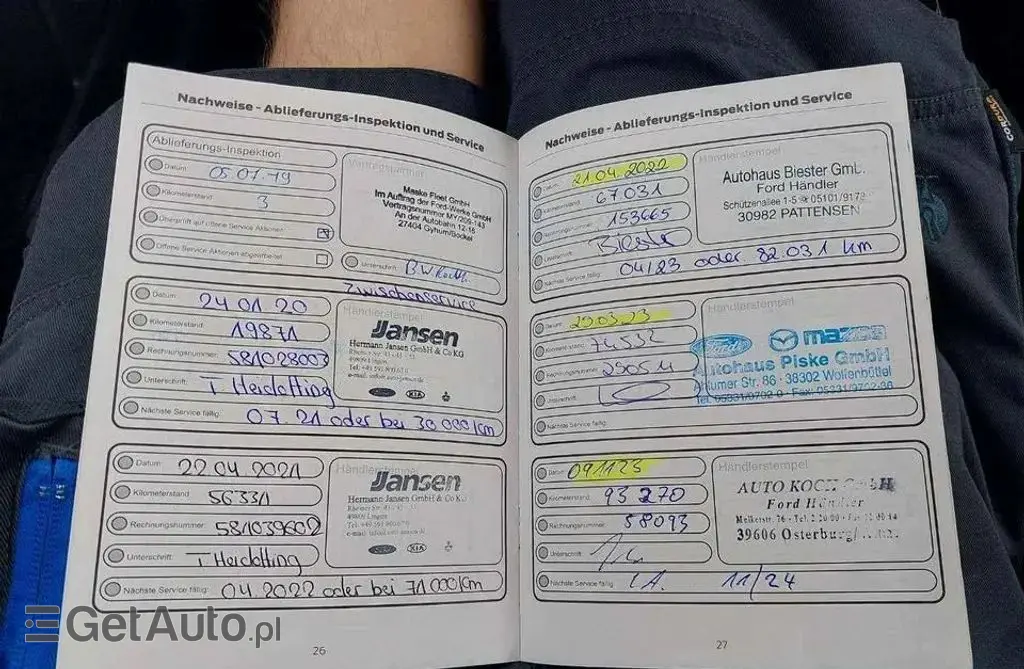 Nachweise - Ablieferungs-Inspektion und Service
Ablieferungs-Inspektion
Datum: 05.07.19
Kilometerstand: 3
Überprüft auf offene Service Aktionen
Offene Service Aktionen abgearbeitet
Vertragspartner
Maske Fleet GmbH
Im Auftrag der Ford-Werke GmbH
Vertragsnummer MY/209-143
An der Autobahn 12-16
27404 Gyhum/Bockel
Unterschrift:
Zwischenservice
Datum: 24.01.20
Kilometerstand: 19871
Rechnungsnummer: 581028003
Unterschrift: T Heidotting
Nächste Service fällig: 07.21 oder bei 30 000 km
Händlerstempel
Jansen
Hermann Jansen GmbH & Co KG
KIA
Datum: 22.04.2021
Kilometerstand: 56331
Rechnungsnummer: 581039602
Unterschrift: T Heidotting
Nächste Service fällig: 04.2022 oder bei 71 000 km
Händlerstempel
Jansen
Hermann Jansen GmbH & Co KG
KIA
26
Nachweise - Ablieferungs-Inspektion und Service
Datum: 21.04.2022
Kilometerstand: 67031
Rechnungsnummer: 153665
Unterschrift: Biester
Nächste Service fällig: 04/23 oder 82.031 km
Händlerstempel
Autohaus Biester GmbH
Ford Händler
Schützenallee 1-5 ☎ 05101/9172
30982 PATTENSEN
Datum: 29.03.23
Kilometerstand: 74532
Rechnungsnummer:
Unterschrift:
Nächste Service fällig:
Händlerstempel
Ford mazda
Autohaus Piske GmbH
Ahlumer Str. 86 · 38302 Wolfenbüttel
Tel. 05331/9702-0 · Fax: 05331/9702-36
Datum: 091123
Kilometerstand: 93 270
Rechnungsnummer: 58093
Unterschrift:
Nächste Service fällig: i.A. 11/24
Händlerstempel
AUTO KOCH GmbH
Ford Händler
39606 Osterburg
27
GetAuto.pl
CORDURA